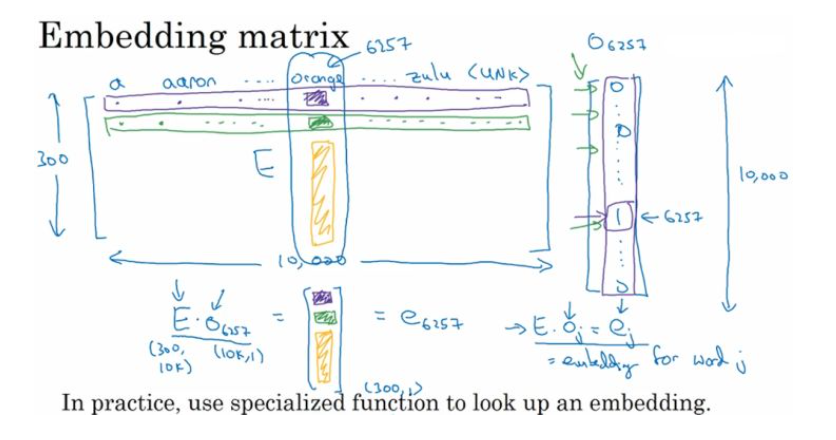 Embedding matrix
6257
O6257
a aaron .... orange .... zulu <UNK>
0
0
300
E
10,000
1
← 6257
10,000
0
E · O6257 = [ ] = e6257
(300, 10K) (10K,1)
(300,1)
→ E · Oj = ej
= embedding for word j
In practice, use specialized function to look up an embedding.